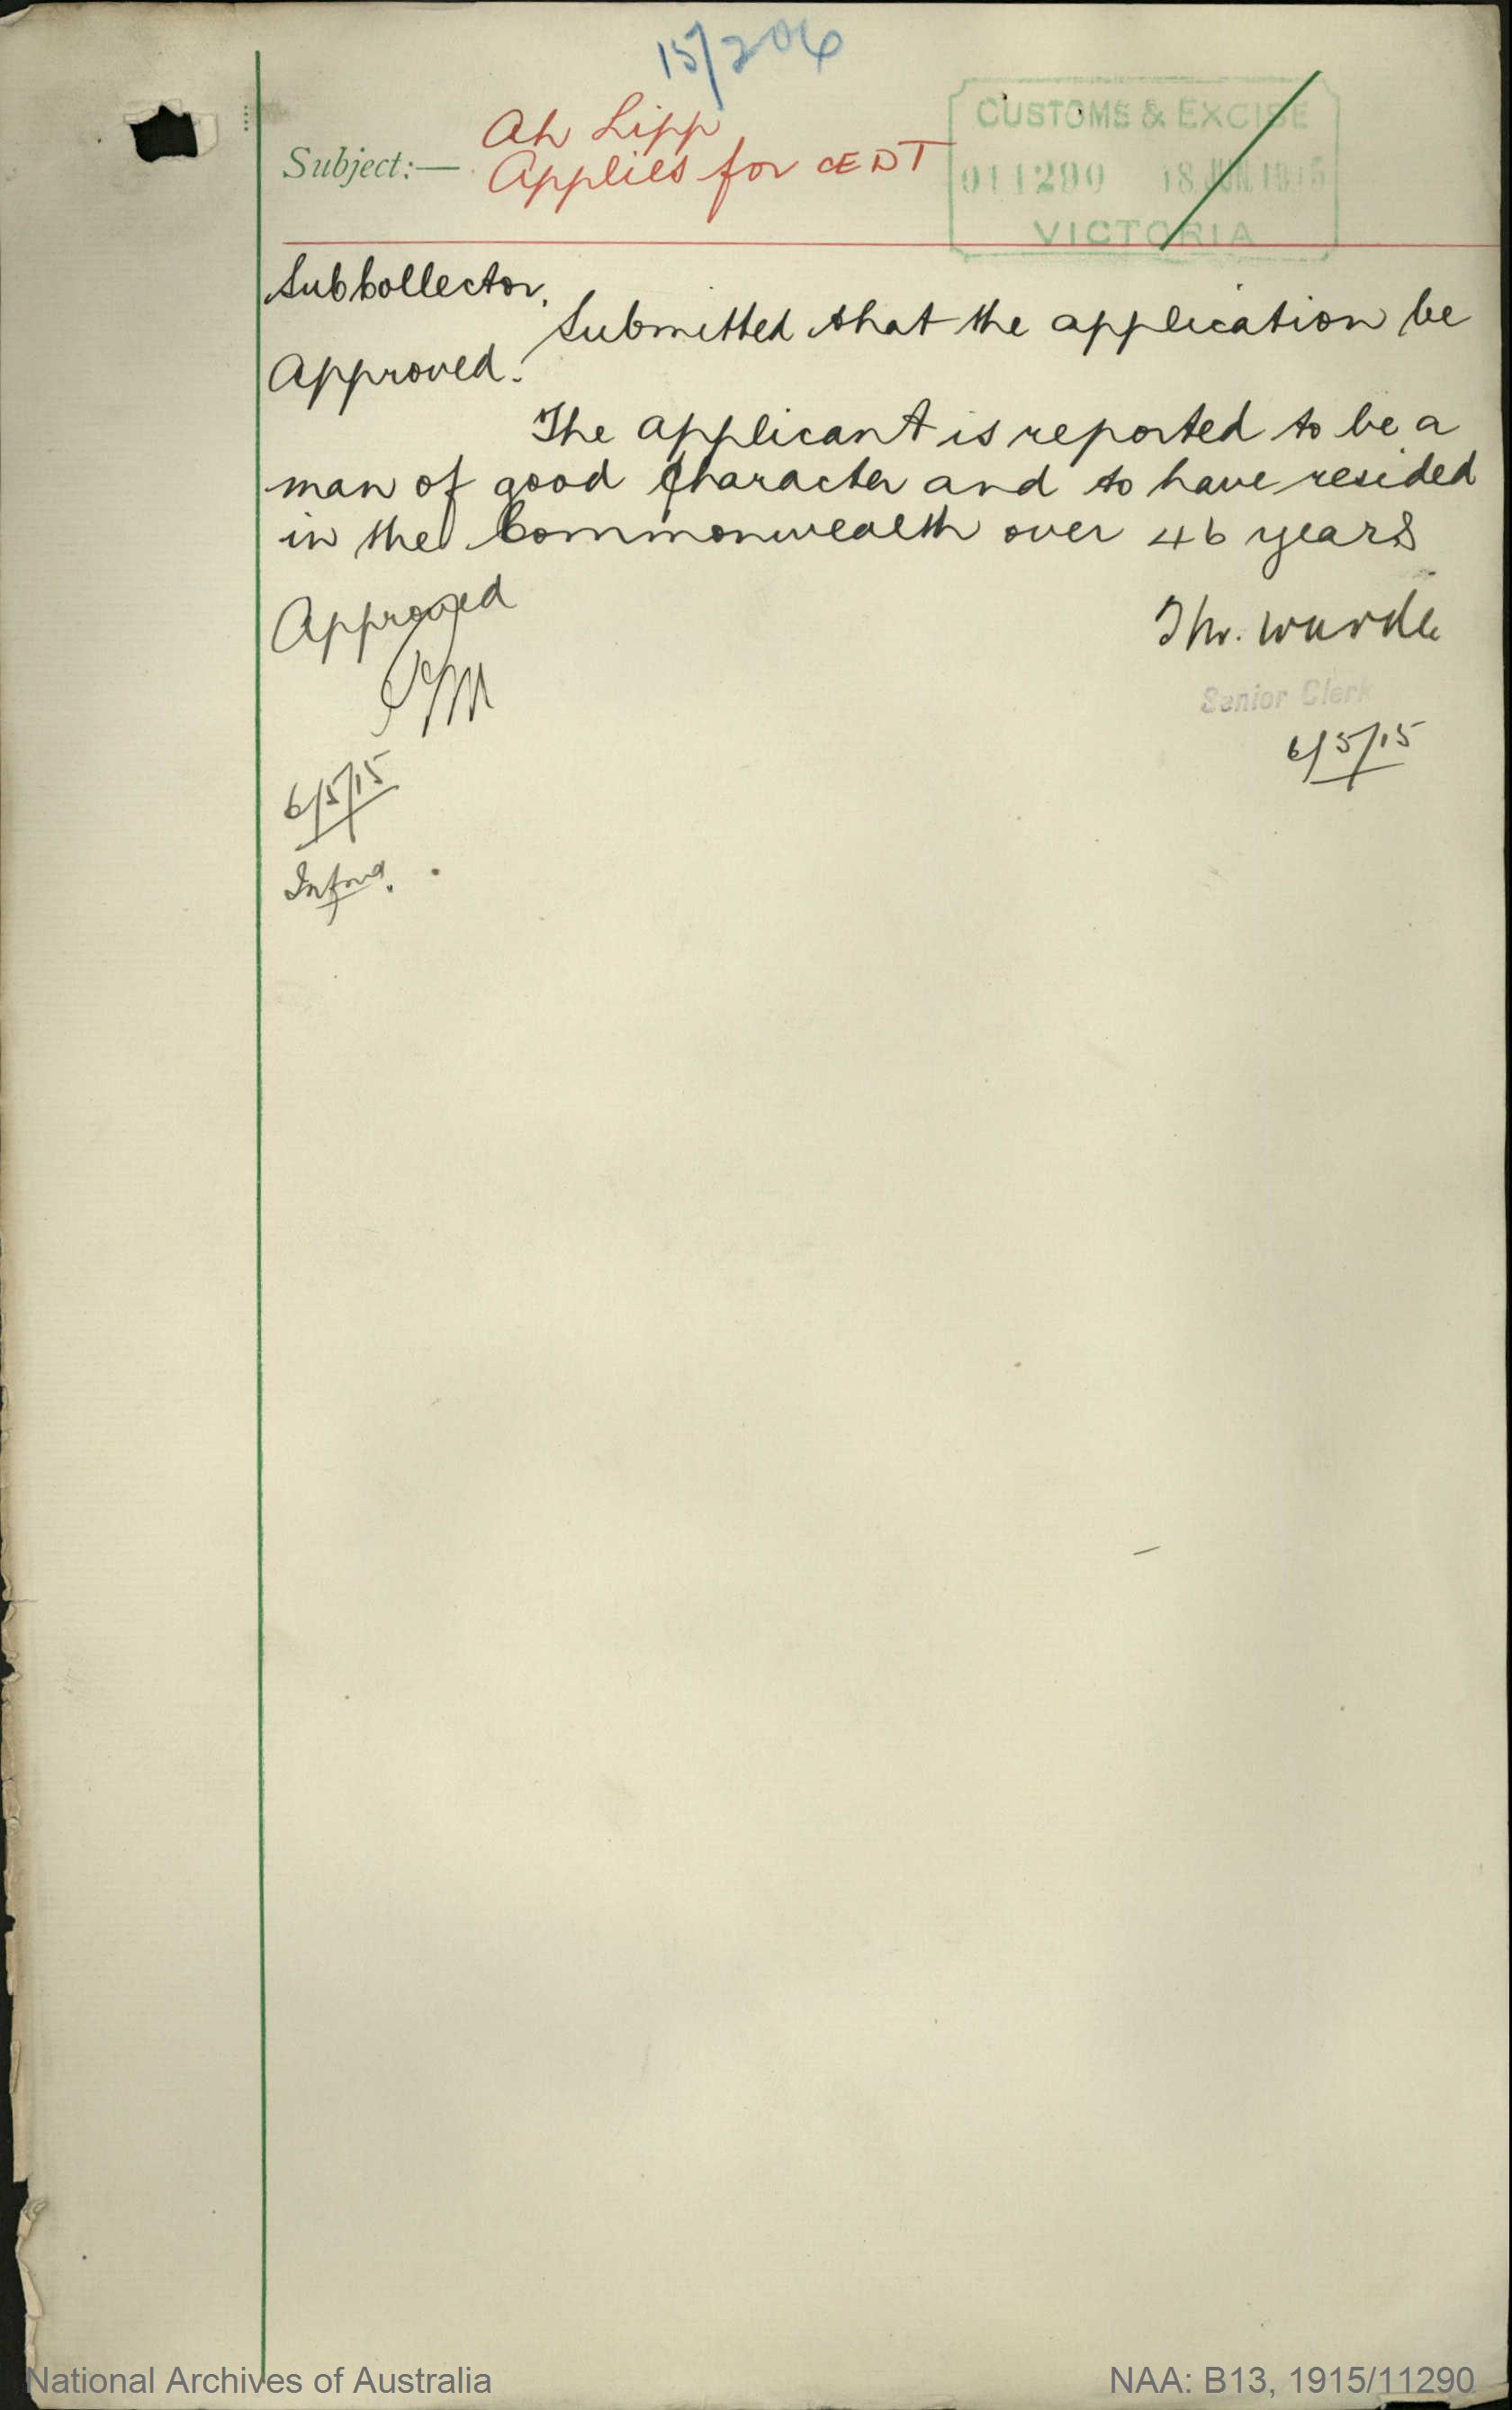 15/204
Ah Lipp
Subject:— Applies for CEDT
CUSTOMS & EXCISE
011290 18 JUN 1915
VICTORIA
SubCollector.
Submitted that the application be
Approved.
The applicant is reported to be a
man of good Character and to have resided
in the Commonwealth over 46 years
Approved
Senior Clerk
6/5/15
6/5/15
National Archives of Australia
NAA: B13, 1915/11290